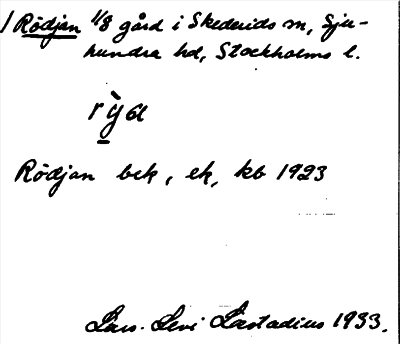 / Rödjan 1/8 gård i Skederids sn, Sju-
hundra hd, Stockholms l.
Rödjan bek, ek, kb 1923
Lars-Levi Læstadius 1933.